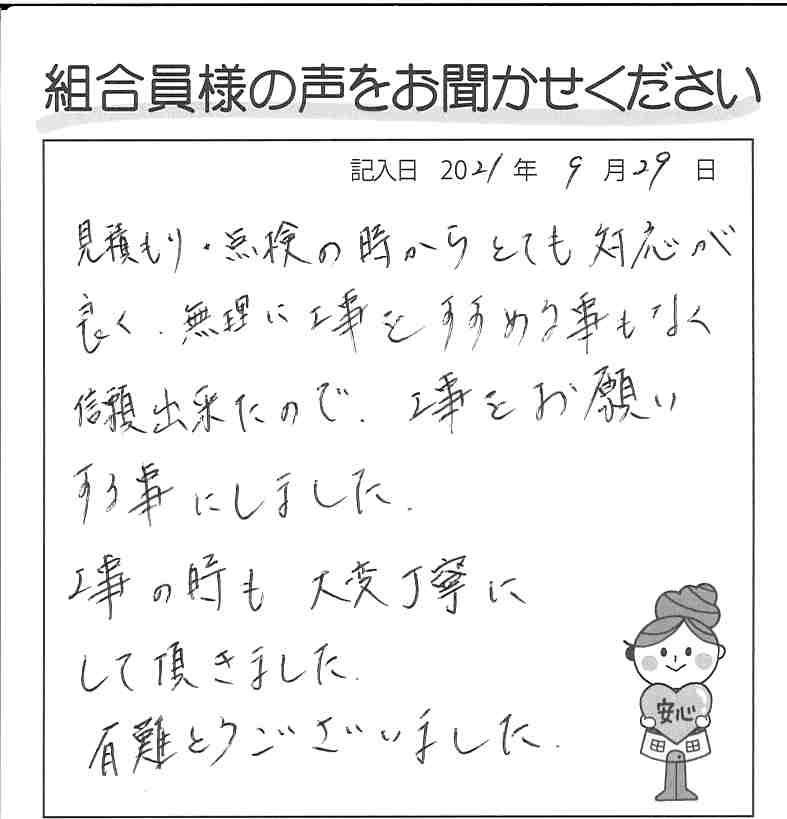 組合員様の声をお聞かせください
記入日 2021年 9月29日
見積もり・点検の時からとても対応が
良く、無理に工事をすすめる事もなく
信頼出来たので、工事をお願い
する事にしました。
工事の時も大変丁寧に
して頂きました。
有難とうございました。
安心